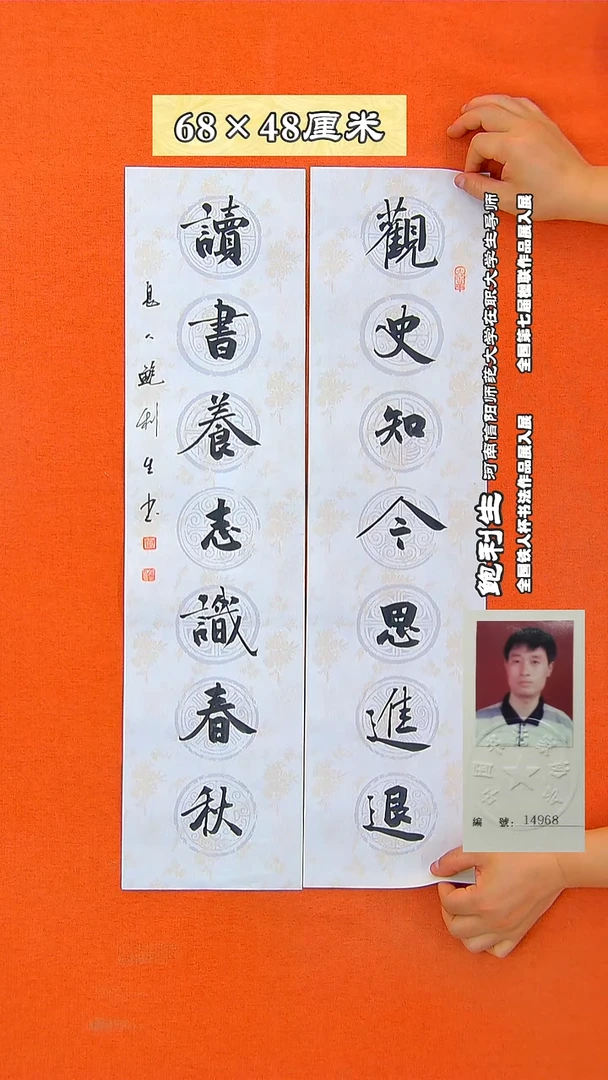 68×48厘米
觀史知今思進退
讀書養志識春秋
息人鮑利生书
鲍利生 河南信阳师范大学在职大学生导师
全国铁人杯书法作品展入展 全国第七届楹联作品展入展
編 號：14968